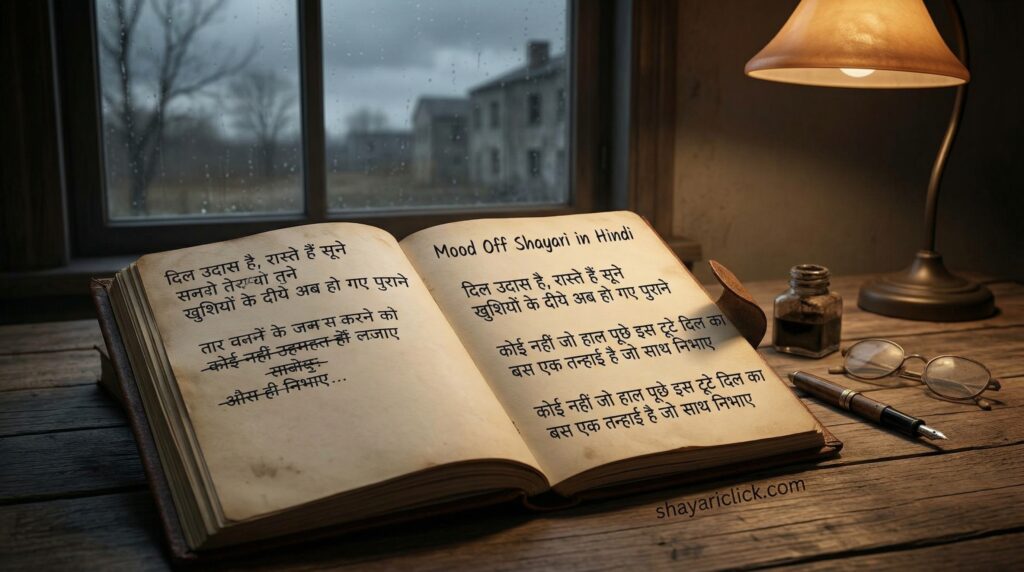 दिल उदास है, रास्ते हैं सूने
खुशियों के दीये अब हो गए पुराने
तार वननें के जबम स करने को
कोई नहीं उहमहत हौं लजाए
साबांकु
औस ही निभाए...
Mood Off Shayari in Hindi
दिल उदास है, रास्ते हैं सूने
खुशियों के दीये अब हो गए पुराने
कोई नहीं जो हाल पूछे इस टूटे दिल का
बस एक तन्हाई है जो साथ निभाए
कोई नहीं जो हाल पूछे इस टूटे दिल का
बस एक तन्हाई है जो साथ निभाए
shayariclick.com